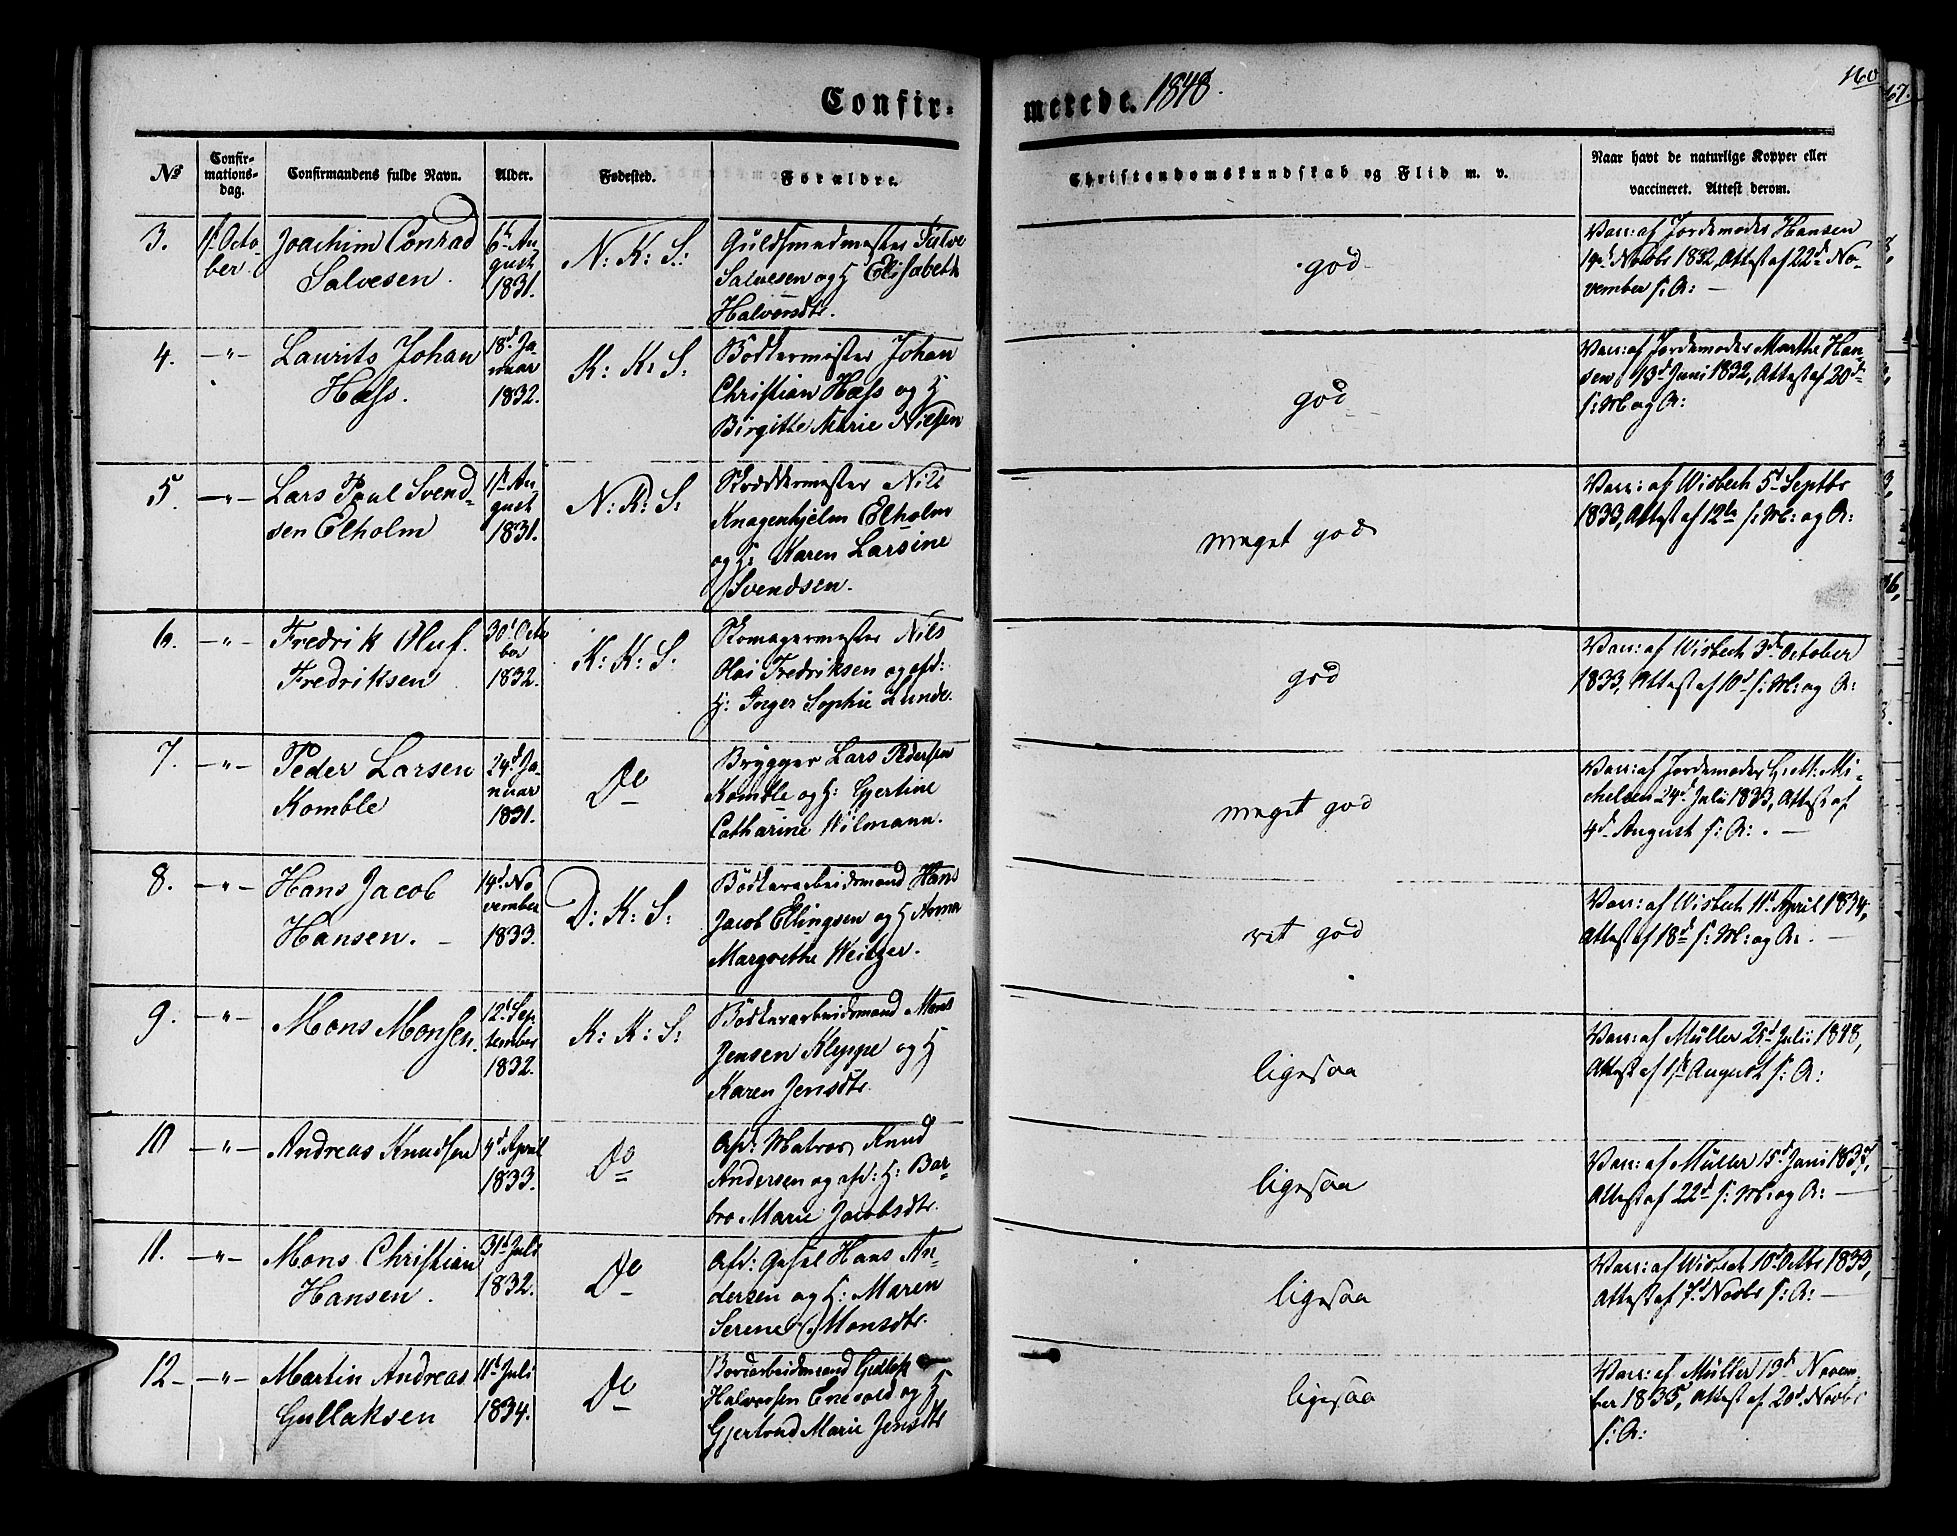 Confirmerede. 1848.
160
67.
No
Confirmationsdag.
Confirmandens fulde Navn.
Alder.
Fødested.
Forældre.
Christendomskundskab og Flid m. v.
Naar havt de naturlige Kopper eller
vaccineret. Attest derom.
3.
1st Octo-
ber
Joachim Conrad
Salvesen.
6te Au-
gust
1831.
N: K: S:
Guldsmedmester
Salvesen og H Elisabeth
Halvorsdtr.
god
Vacc: af Jordemoder Hansen
19d Novbr 1832, Attest af 22d No-
vember s: A:
4.
-"-
Laurits Johan
Hass.
18d Ja-
nuar
1832.
K: K: S:
Bødkermester Johan
Christian Hass og H
Birgitte Marie Nilsen
god
Vacc: af Jordemoder Marthe Han-
sen 13d Juni 1832, Attest af 20d
s: M og A:
5.
-"-
Lars Paul Svend-
sen Elholm
1st Au-
gust
1831.
N: K: S:
Skræddermester Nils
Knagenhjelm Elholm
og H: Karen Larsine
Svendsen.
meget god
Vacc: af Wisbech 5d Septbr
1833, Attest af 12te s: M: og A:
6.
-"-
Fredrik Oluf
Fredriksen
30d Octo-
ber
1832.
K: K: S:
Skomagermester Nils
Hoi Fredriksen og afd:
H: Inger Sophie Lunde.
god
Vacc: af Wisbech 3d October
1833, Attest af 10d s: M: og A:
7.
-"-
Peder Larsen
Komble
24d Ja-
nuar
1831.
Do
Brygger Lars Pedersen
Komble og H: Gjertine
Catharine Wilmann.
meget god
Vacc: af Jordemoder G: M: Mi-
chelsen 24d Juli 1833, Attest af
4d August s: A:
8.
-"-
Hans Jacob
Hansen.
14d No-
vember
1833.
D: K: S:
Bødkerarbeidsmand Hans
Jacob Ellingsen og H Anna
Margrethe Weitzer.
ret god
Vacc: af Wisbech 11d April 1834,
Attest af 18d s: M: og A:
9.
-"-
Mons Monsen.
12d Sep-
tember
1832.
K: K: S:
Bødkerarbeidsmand Mons
Jensen Kleppe og H
Karen Jensdtr.
ligesaa
Vacc: af Müller 25d Juli 1848,
Attest af 1st August s: A:
10
-"-
Andreas Knudsen
9d April
1833.
Do
Afd: Matros Knud
Andersen og afd: H: Bar-
bro Marie Jacobsdtr.
ligesaa
Vacc: af Müller 15d Juni 1837,
Attest af 22d s: M: og A:
11.
-"-
Mons Christian
Hansen.
31d Juli
1832.
Do
Afd: Gesel Hans An-
dersen og H: Maren
Serene Monsdtr.
ligesaa
Vacc: af Wisbech 10d Octbr 1833,
Attest af 7d Novbr s: A:
12
-"-
Martin Andreas
Gullaksen
11d Juli
1834.
Do
Bordarbeidsmand Gullak
Halvorsen Enevold og H
Gjertrud Marie Jensdtr
ligesaa
Vacc: af Müller 13d Novem-
ber 1835, Attest af 20d Novbr
s: A: